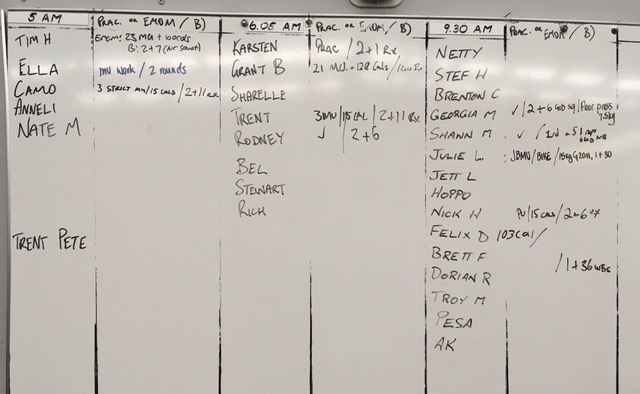 5 AM
PRAC. or EMOM / B)
TIM H
Emom: 25 MU + 100 cals
B: 2+7 (Air squat)
ELLA
MU WORK / 2 rounds
CAMO
3 STRICT MU/15 CALS / 2+11 Rx
ANNELI
NATE M
TRENT PETE
6.05 AM
PRAC. or EMOM / B)
KARSTEN
PRAC / 2+1 Rx
GRANT B
21 MU
SHARELLE
TRENT
3MU/15 CAL / 2+11 Rx
RODNEY
✓ / 2+6
BEL
STEWART
RICH
9.30 AM
PRAC. or EMOM / B)
NETTY
STEF H
BRENTON C
GEORGIA M
✓ / 2+6 press
7.5kg
SHAWN M
✓ /
JULIE L.
: / BIKE / 1+30
JETT L
HOPPO
NICK H
PU/15 CALS / 2+6
FELIX D
103 CAL /
BRETT F
/ 1+36 WBS
DORIAN R
TROY M
PESA
AK